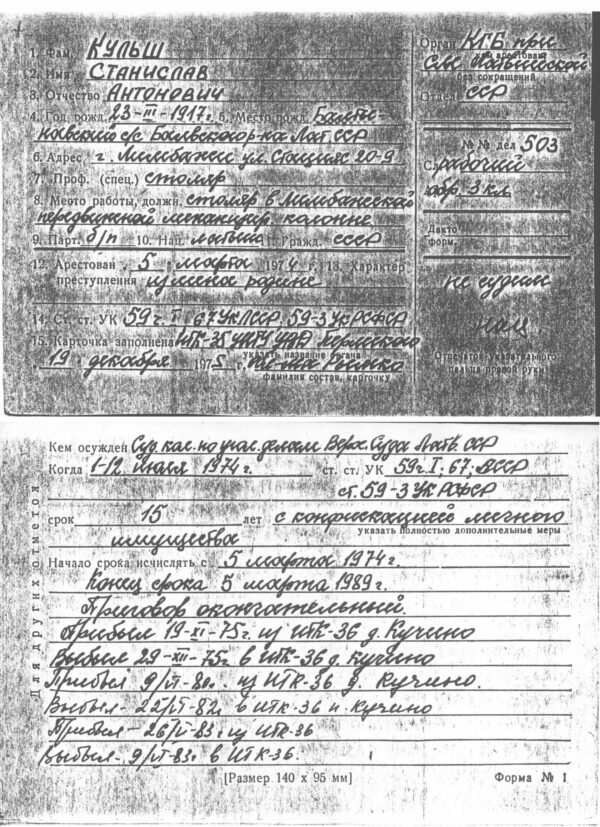 1. Фам. КУЛЬШ
2. Имя СТАНИСЛАВ
3. Отчество АНТОНОВИЧ
4. Год рожд. 23-III-1917г. 5. Место рожд. Балти-
навский с/с Балвского р-на Лат.ССР
6. Адрес г. Лимбажи ул. Стацияс 20-9
7. Проф. (спец.) столяр
8. Место работы, должн. столяр в Лимбажской
передвижной механизир. колонне
9. Парт. б/п 10. Нац. латыш 11. Гражд. СССР
12. Арестован 5 марта 1974 г. 13. Характер
преступления измена родине
14. Ст. ст. УК 59 ч. I; 67 УК ЛССР, 59-3 УК РСФСР
15. Карточка заполнена ИТК-35 УВД Пермского
указать название органа
19 декабря 1975
фамилия состав. карточку
Орган КГБ при
кем арестован
СМ Латвийской
без сокращений
Отдел ССР
№ № дел 503
С. рабочий
обр. 3 кл
Дакто
форм.
не судим
Отпечаток указательного
пальца правой руки
Для других отметок
Кем осужден Суд. кол. по угол. делам Верх. Суда Латв. ССР
Когда 1-12 июля 1974 г. ст. ст. УК 59 ч. I; 67; ЛССР
ст. 59-3 УК РСФСР
срок 15 лет с конфискацией личного
указать полностью дополнительные меры
имущества
Начало срока исчислять с 5 марта 1974 г.
Конец срока 5 марта 1989 г.
Приговор окончательный.
Прибыл 19-XI-75г из ИТК-36 д. Кучино
Выбыл 29-XII-75г в ИТК-36 д. Кучино
из ИТК-36 д. Кучино.
в ИТК-36 п. Кучино
из ИТК-36
в ИТК-36.
[Размер 140 х 95 мм] Форма № 1